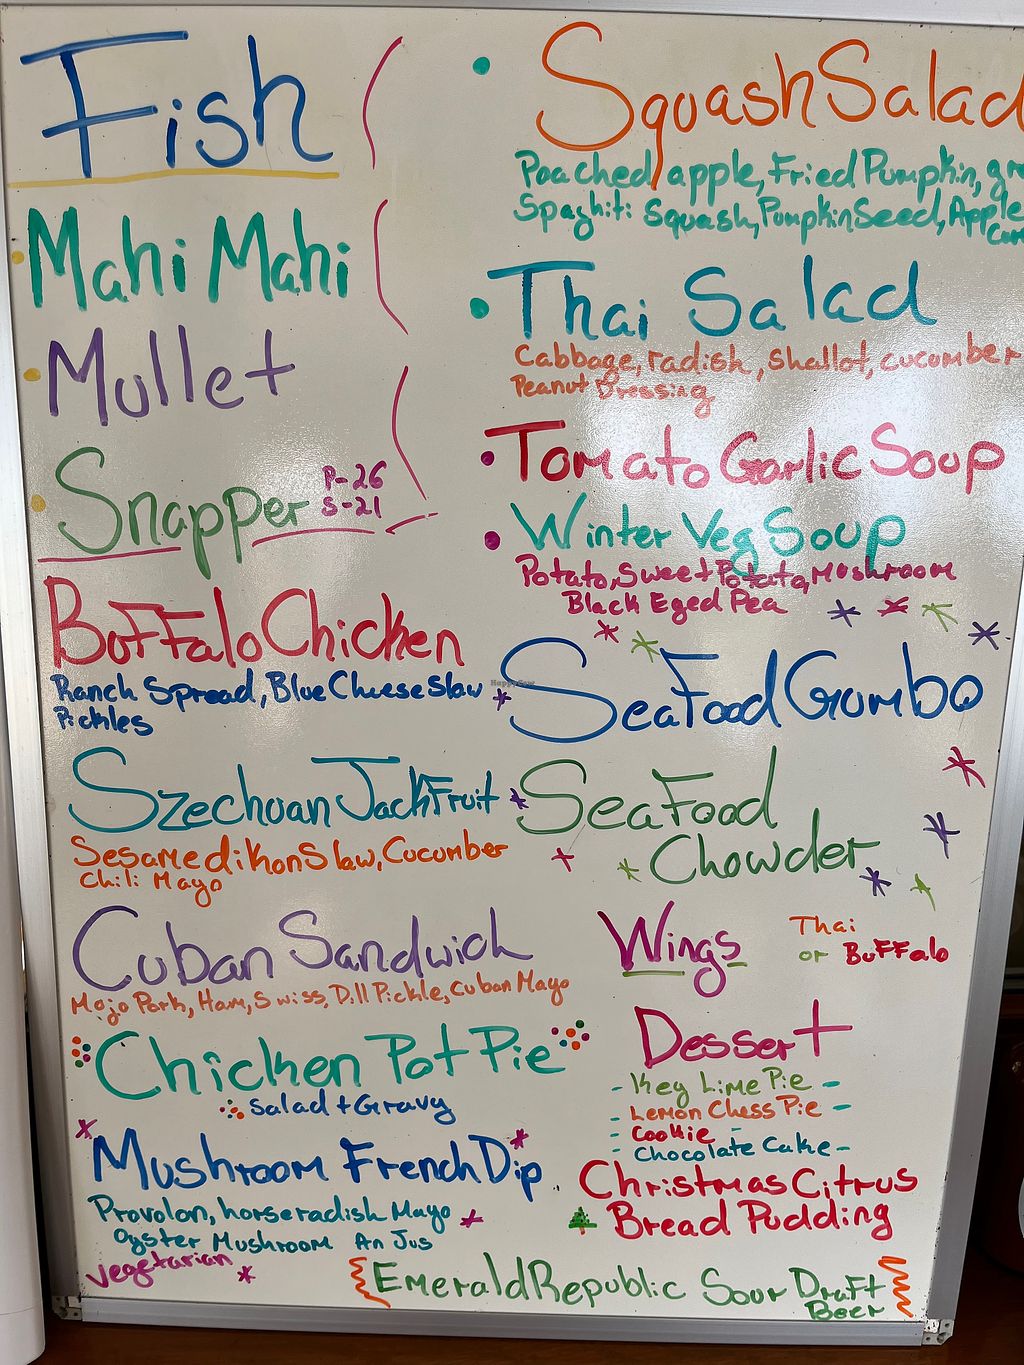 Fish
Mahi Mahi
Mullet
Snapper
P-26
S-21
Buffalo Chicken
Ranch Spread, Blue Cheese Slaw
Pickles
Szechuan JackFruit
Sesame dikon Slaw, Cucumber
Chili Mayo
Cuban Sandwich
Mojo Pork, Ham, Swiss, Dill Pickle, Cuban Mayo
Chicken Pot Pie
Salad + Gravy
Mushroom French Dip
Provolon, horseradish Mayo
Oyster Mushroom An Jus
Vegetarian
Squash Salad
Poached apple, Fried Pumpkin,
Spaghiti Squash, Pumpkin Seed, Apple
Thai Salad
Cabbage, radish, shallot, cucumber
Peanut Dressing
Tomato Garlic Soup
Winter Veg Soup
Potato, Sweet Potato, Mushroom
Black Eyed Pea
HappyCow
SeaFood Gumbo
SeaFood
Chowder
Wings
Thai
or Buffalo
Dessert
- Key Lime Pie -
- Lemon Chess Pie -
- Cookie -
- Chocolate Cake -
Christmas Citrus
Bread Pudding
Emerald Republic Sour Draft
Beer